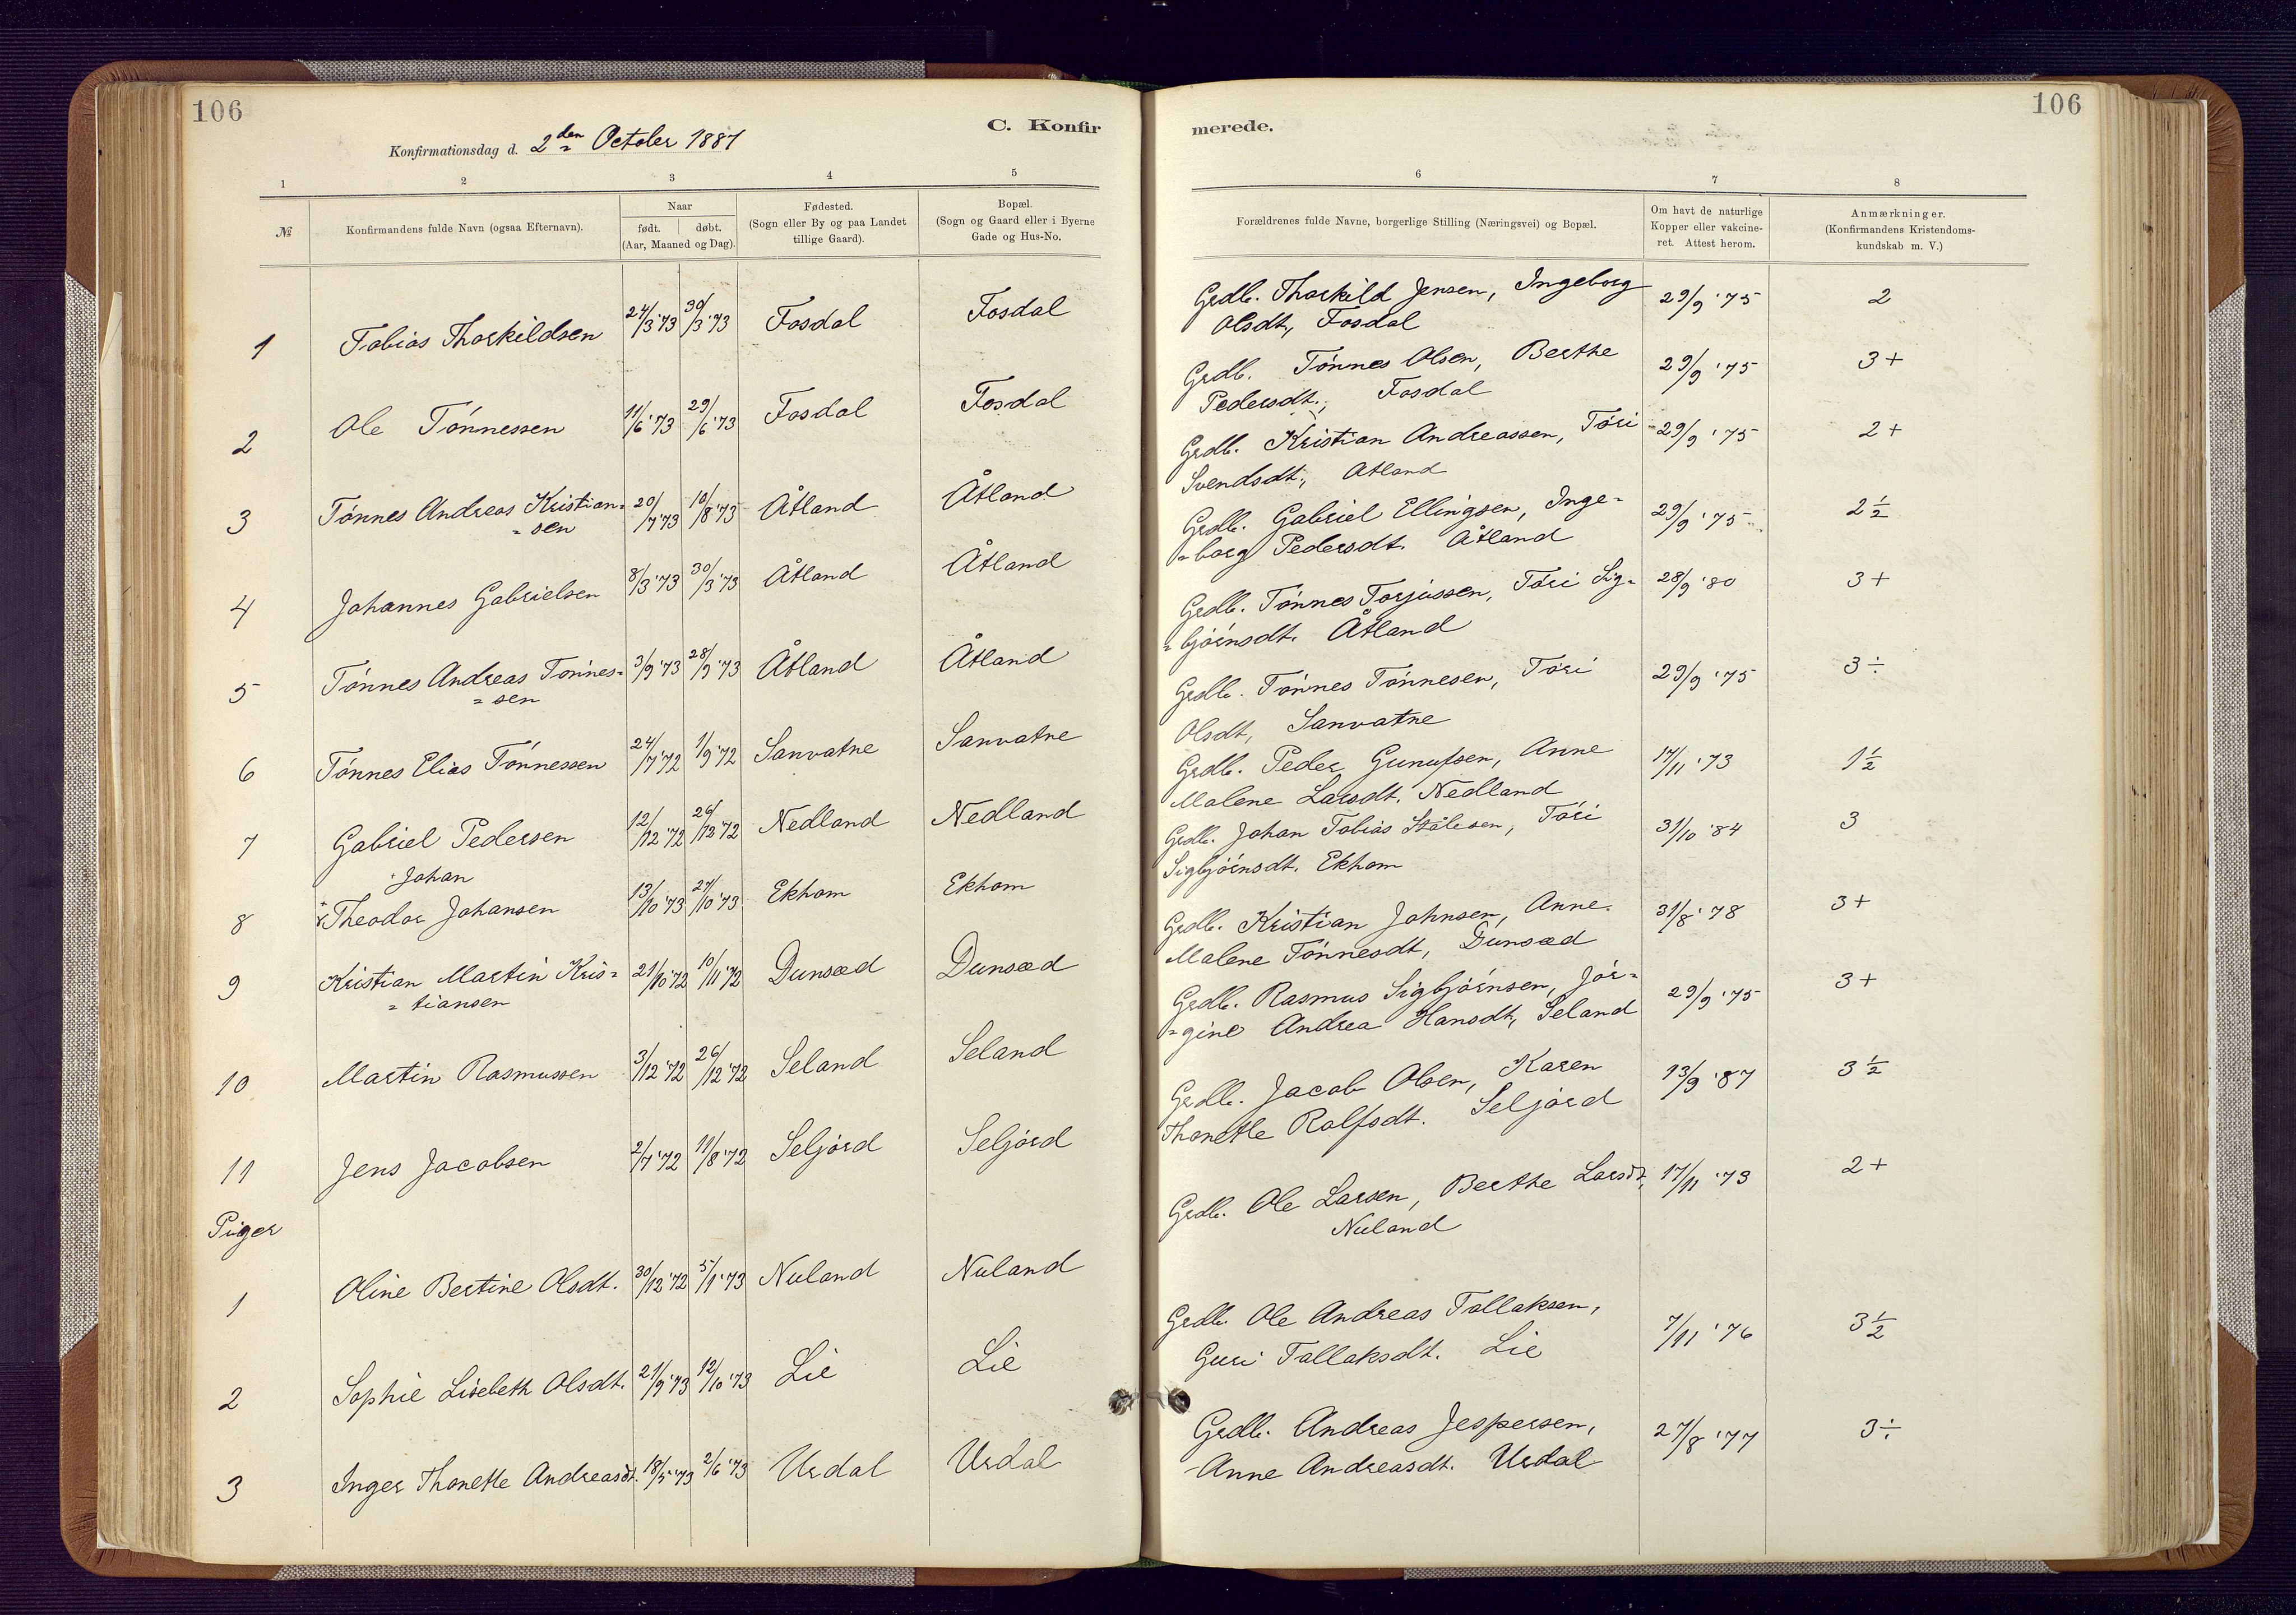 106
C. Konfir
merede.
106
Konfirmationsdag d. 2den October 1887
1 2 3 4 5 6 7 8
№
Konfirmandens fulde Navn (ogsaa Efternavn).
Naar
født. døbt.
(Aar, Maaned og Dag).
Fødested.
(Sogn eller By og paa Landet
tillige Gaard).
Bopæl.
(Sogn og Gaard eller i Byerne
Gade og Hus-No.
Forældrenes fulde Navne, borgerlige Stilling (Næringsvei) og Bopæl.
Om havt de naturlige
Kopper eller vakcine-
ret. Attest herom.
Anmærkninger.
(Konfirmandens Kristendoms-
kundskab m. V.)
1 Tobias Thorkildsen 24/3 '73 30/3 '73 Fosdal Fosdal
Grdb. Thorkild Jensen, Ingeborg 29/9 '75 2
Olsdt., Fosdal
2 Ole Tónnessen 11/6 '73 29/6 '73 Fosdal Fosdal
Grdb. Tónnes Olsen, Berthe 29/9 '75 3+
Pedersdt., Fosdal
3 Tónnes Andreas Kristian= 20/7 '73 10/8 '73 Åtland Åtland
=sen
Grdb. Kristian Andreassen, Tóri 29/9 '75 2+
Svendsdt., Åtland
4 Johannes Gabrielsen 8/3 '73 30/3 '73 Åtland Åtland
Grdb. Gabriel Ellingsen, Inge= 29/9 '75 2½
=borg Pedersdt. Åtland
5 Tónnes Andreas Tónnes= 3/9 '73 28/9 '73 Åtland Åtland
=sen
Grdb. Tónnes Torjussen, Tóri Sig= 28/9 '80 3+
=bjórnsdt. Åtland
6 Tónnes Elias Tónnessen 24/7 '72 1/9 '72 Sanvatne Sanvatne
Grdb. Tónnes Tónnesen, Tóri 29/9 '75 3÷
Olsdt, Sanvatne
7 Gabriel Pedersen 12/12 '72 26/12 '72 Nedland Nedland
Grdb. Peder Gunufsen, Anne 17/11 '73 1½
Malene Larsdt. Nedland
Johan
8 Theodor Johansen 13/10 '73 27/10 '73 Ekhom Ekhom
Grdb. Johan Tobias Stålesen, Tóri 31/10 '84 3
Sigbjórnsdt. Ekhom
9 Kristian Martin Kris= 21/10 '72 10/11 '72 Dunsæd Dunsæd
=tiansen
Grdb. Kristian Johnsen, Anne 31/8 '78 3+
Malene Tónnesdt, Dunsæd
10 Martin Rasmussen 3/12 '72 26/12 '72 Seland Seland
Grdb. Rasmus Sigbjórnsen, Jór= 29/9 '75 3+
=gine Andrea Hansdt, Seland
11 Jens Jacobsen 2/7 '72 11/8 '72 Seljórd Seljórd
Grdb. Jacob Olsen, Karen 13/9 '87 3½
Thonette Rolfsdt. Seljórd
Piger
1 Oline Bertine Olsdt. 30/12 '72 5/1 '73 Nuland Nuland
Grdb. Ole Larsen, Berthe Larsdt, 17/11 '73 2+
Nuland
2 Sophie Lisebeth Olsdt. 21/9 '73 12/10 '73 Lie Lie
Grdb. Ole Andreas Tollaksen, 7/11 '76 3½
Guri Tallaksdt. Lie
3 Inger Thonette Andreasdt. 18/5 '73 2/6 '73 Urdal Urdal
Grdb. Andreas Jespersen, 27/8 '77 3÷
Anne Andreasdt. Urdal